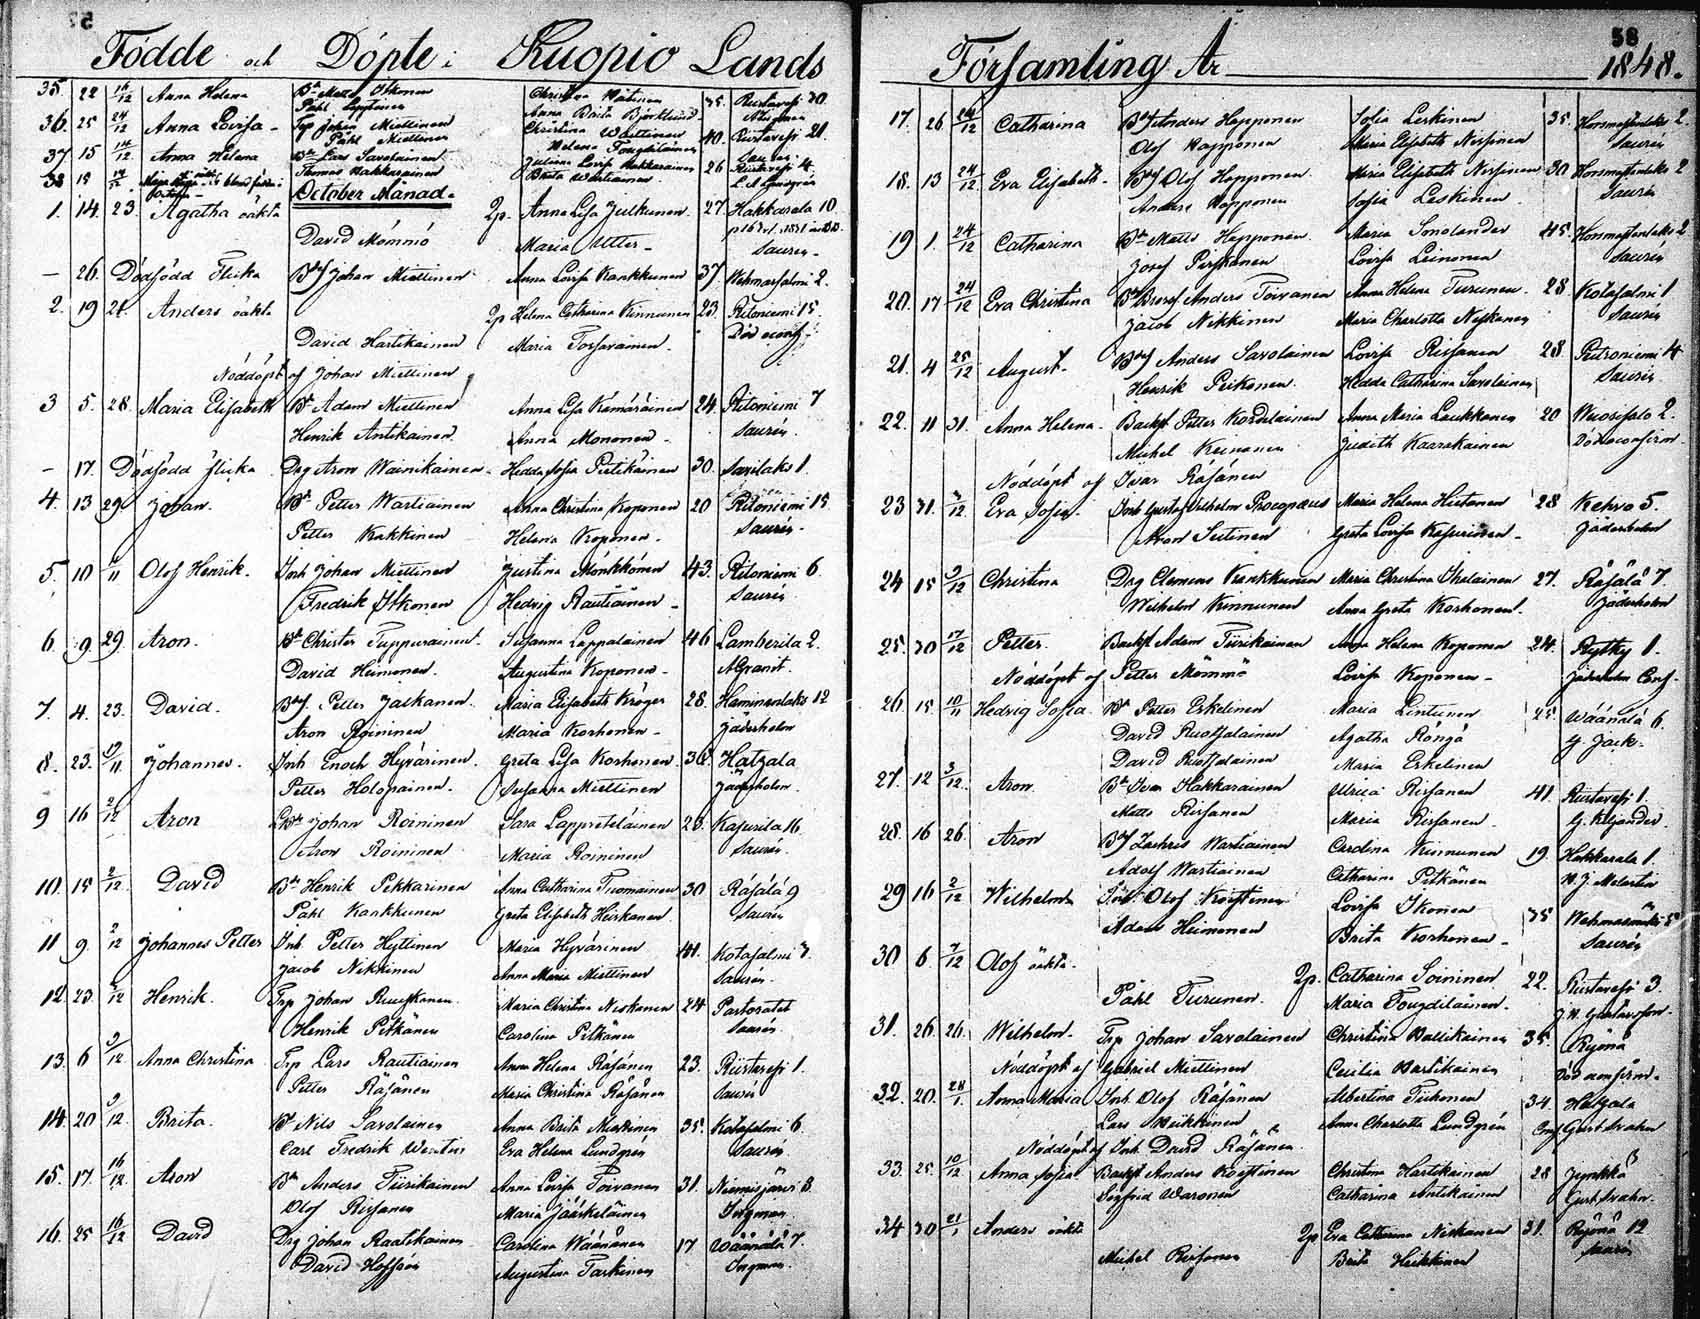 57
Födde och Döpte i Kuopio Lands
35. 22 Anna Helena Matts Itkonen Christina 35. Riistavesi 30
36. 25 24/12 Anna Lovisa Trp Johan Miettinen Anna Brita Björklund
Påhl Miettinen Christina Wartiainen 40. Riistavesi 21.
37 15 Anna Helena Bd Lars Savolainen Juliana Lovisa Hakkarainen 26 Riistavesi 4
38 15 Thomas Hakkarainen Brita Wartiainen
October Månad.
1. 14. 23. Agatha oäkta 2p. Anna Lisa Julkunen. 27. Hakkarala 10
David Mömmö Maria Utter Saurén
— 26. Dödfödd Flicka Johan Miettinen Anna Lovisa Kankkunen 37. Wehmasalmi 2.
2. 19 21. Anders oäkta 2p Helena Catharina Kinnunen 23. Ritoniemi 15.
David Hartikainen Maria Torsavainen Död
Nöddöpt af Johan Miettinen
3 5. 28. Maria Elisabeth Bd Adam Miettinen Anna Lisa Kämäräinen 24. Ritoniemi 7
Henrik Antikainen Anna Mononen Saurén
— 17. Dödfödd flicka Drg Aron Wainikainen Hedda Sofia Pietikäinen 30. Savilaks 1.
4. 13 29 Johan. Bd Petter Wartiainen Anna Christina Koponen 20 Ritoniemi 15
Petter Kakkinen Helena Koponen Saurén
5. 10 Olof Henrik. Inh Johan Miettinen Justina Mönkkönen 43. Ritoniemi 6.
Fredrik Itkonen Hedvig Rautiainen Saurén
6. 9 29. Aron. Bd Christer Tuppurainen Susanna Lappalainen 46 Lamberila 2.
David Heimonen. Augustina Koponen A Granit.
7. 4. 23. David. Petter Jalkanen Maria Elisabeth Kröger 28. Haminanlaks 12
Aron Roininen Maria Korhonen Jäderholm
8. 23. Johannes. Inh Enoch Hyvärinen Greta Lisa Korhonen 36. Hatzala
Petter Holopainen. Susanna Miettinen Jäderholm
9 16 2/12 Aron Johan Roininen Sara Lappveteläinen 28. Kasurila 16
Aron Roininen Maria Roininen Saurén
10. 15 2/12. David Bd Henrik Pekkarinen Anna Catharina Tuomainen 30 Räsälä 9
Påhl Kankkunen Greta Elisabeth Heiskanen. Saurén
11 9. 2/12 Johannes Petter Inh Petter Hyttinen Maria Hyvärinen 41. Kotasalmi 7.
Jacob Nikkinen Anna Maria Miettinen Saurén
12. 23. Henrik. Trp Johan Ruuskanen Maria Christina Niskanen 24 Pastoratet
Henrik Pitkänen Carolina Pitkänen Saurén
13. 6 Anna Christina Trp Lars Rautiainen Anna Helena Räsänen 23. Riistavesi 1.
Petter Räsänen Maria Christina Räsänen Saurén
14. 20 Brita. Bd Nils Savolainen Anna Brita Miettinen 35. Kotasalmi 6.
Carl Fredrik Eva Helena Lundgrén Saurén
15. 17. 16/12 Aron Bd Anders Tiirikainen Anna Lovisa Toivanen 31. Niemisjärvi 3.
Olof Rissanen Maria Jääskeläinen Ingman.
16. 25 16/12 David Drg Johan Raatikainen Carolina Wäänänen 17 Wäänälä 7.
David Hoffrén Augustina Tarkinen Ingman.
58
Församling År 1848.
17. 26 24/12 Catharina Anders Happonen Sofia Leskinen 35. Honmasanlaks 2.
Olof Happonen Maria Elisabeth Nissinen Saurén
18. 13 24/12 Eva Elisabeth. Olof Happonen Maria Elisabeth Nissinen 30 Honmasanlaks 2
Anders Happonen Sofia Leskinen Saurén
19 1. 24/12 Catharina Bd Matts Happonen Maria Smolander 45 Honmasanlaks 2
Josef Pirskanen Lovisa Leinonen Saurén
20. 17 24/12 Eva Christina Anders Toivanen Anna Helena Turunen. 28. Kotasalmi 1
Jacob Nikkinen Maria Charlotta Niskanen Saurén
21. 4 25/12 August. Anders Savolainen Lovisa Rissanen 28 Ritoniemi 4
Henrik Pirhonen Hedda Catharina Savolainen Saurén
22. 11 31. Anna Helena. Backst Petter Korolainen Anna Maria Laukkanen 20 Wuorisalo 2.
Michel Keinonen Judith Kaarakainen
Nöddöpt af Ivar Räsänen
23 31. Eva Sofia. Inh Gustaf Wilhelm Procopaeus Maria Helena Hiltonen 28 Kehvo 5.
Aron Seitinen Greta Lovisa Kasurinen Jäderholm
24 15 Christina Drg Clemens Kankkunen Maria Christina Ikalainen 27. Räsälä 7
Wilhelm Kinnunen Anna Greta Korhonen Jäderholm
25. 30 17/12 Petter. Backst Adam Tiirikainen Anna Helena Koponen 24. Rytky 1.
Nöddöpt af Petter Mömmö Lovisa Koponen Jäderholm Conf.
26 15 10/11 Hedvig Sofia. Bd Petter Eskelinen Maria Lintunen 25 Wäänälä 6.
David Ruotsalainen Agatha Röngä G. Jack.
David Ruotsalainen Maria Eskelinen
27. 12 3/12 Aron. Bd Ivar Hakkarainen Ulrica Rissanen 41. Riistavesi 1.
Matts Rissanen Maria Rissanen G. Kiljander.
28. 16 26. Aron Zachris Wartiainen Carolina Kinnunen 19. Hakkarala 1.
Adolf Wartiainen Catharina Pitkänen N. J. Molarius
29 16 2/12 Wilhelm Inh. Olof Koistinen Lovisa Ikonen 35 Wehmasmäki 5
Adam Heimonen Brita Korhonen Saurén
30 6. 7/12 Olof oäkta. 2p. Catharina Soininen 22. Riistavesi 3.
Påhl Turunen. Maria Tougdilainen. J. W. Gustavson.
31. 26. 26. Wilhelm. Trp Johan Savolainen Christina Vallikainen 35. Ryönä
Nöddöpt af Gabriel Miettinen Cecilia Vartikainen
32. 20. 28/1. Anna Maria Inh. Olof Räsänen Albertina Tiihonen 34 Hatzala
Lars Heikkinen Anna Charlotta Lundgrén Conf Gust Svahn
Nöddöpt af Inh David Räsänen
33. 25. 10/12 Anna Sofia. Backst Anders Koistinen Christina Hartikainen 28 Jynkkä 3
Sigfrid Waronen Catharina Antikainen Gust Svahn.
34 30 21/1 Anders oäkta 2p Eva Catharina Niskanen 31. Ryönä 12
Michel Rissanen Brita Heikkinen Saurén